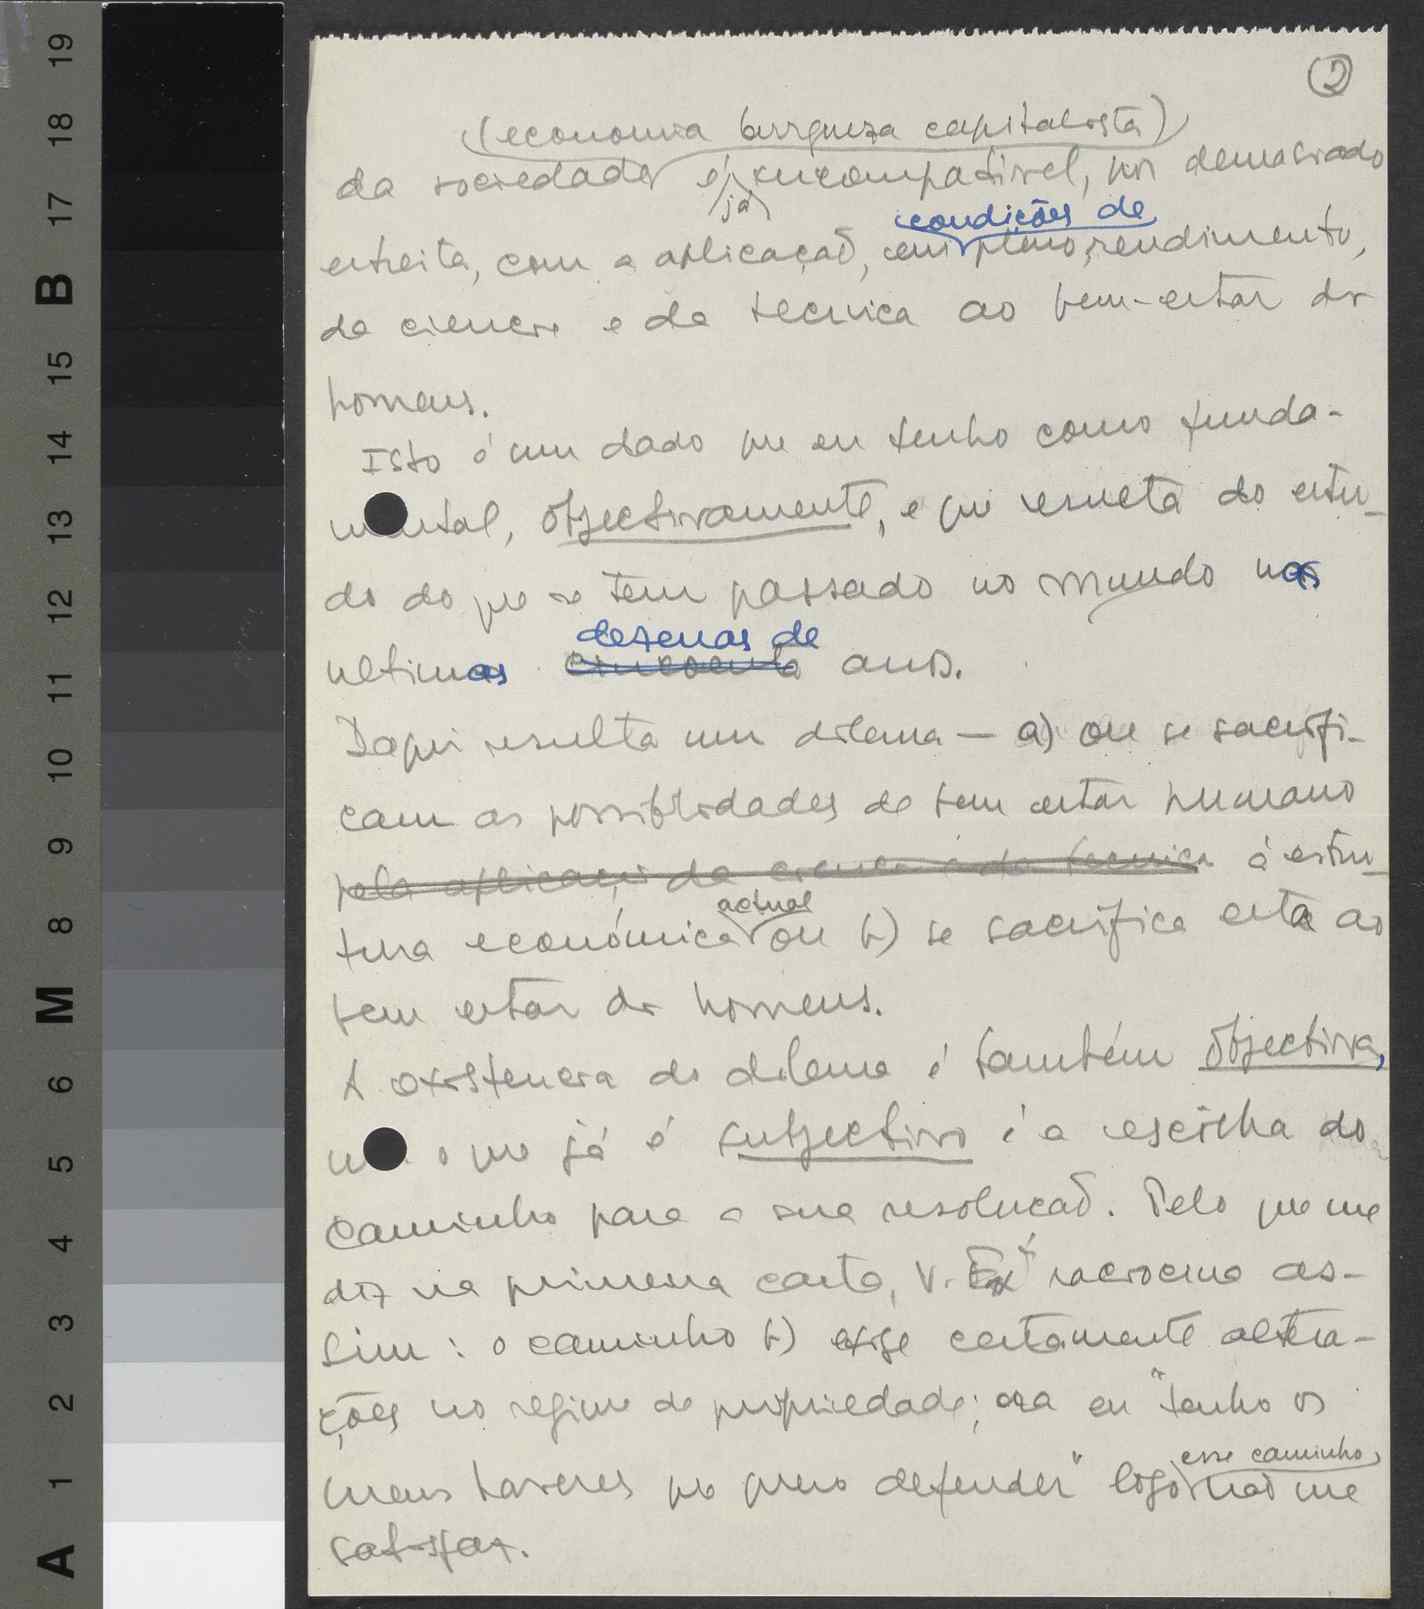 19
18
17
B
15
14
13
12
11
10
9
8
M
6
5
4
3
2
1
A
2
(economia burguesa capitalista)
da sociedade é já incompatível, por demasiado
estreita, com a aplicação, em condições de pleno rendimento,
da ciencia e da tecnica ao bem-estar dos
homens.
Isto é um dado que eu tenho como funda-
mental, objectivamente, e que resulta do estu-
do do que se tem passado no mundo nas
ultimas cincoenta dezenas de anos.
Daqui resulta um dilema — a) ou se sacrifi-
cam as possibilidades de bem estar humano
pela aplicação da ciencia e da tecnica á estru-
tura económica actual ou b) se sacrifica esta ao
bem estar dos homens.
A existencia do dilema é também objectiva,
mas o que já é subjectivo é a escolha do
caminho para a sua resolução. Pelo que me
diz na primeira carta, V. Exª raciocina as-
sim: o caminho b) exige certamente altera-
ções no regime de propriedade; ora eu "tenho os
meus haveres que quero defender" logo esse caminho não me
satisfaz.